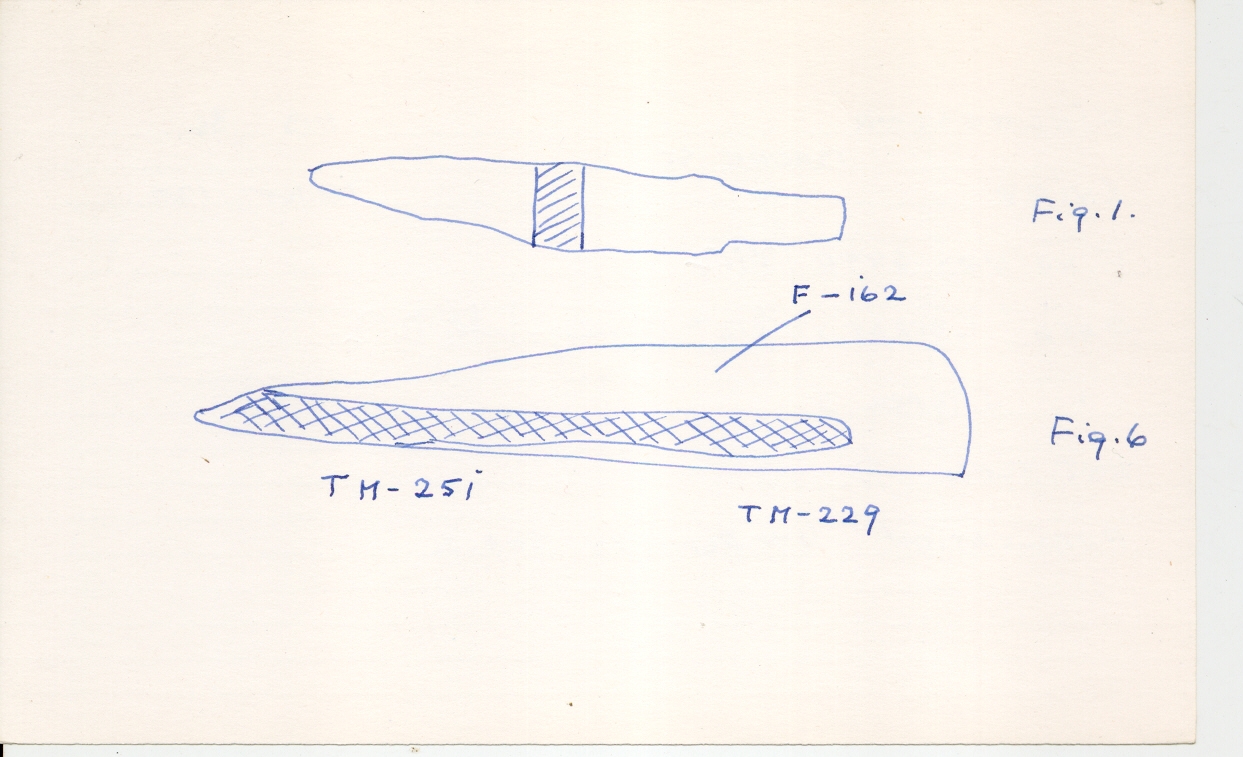 Fig.1.
F-i62
Fig.6
TM-25i
TM-229